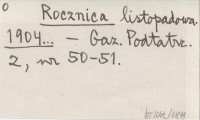 o
Rocznica listopadowa.
1904... – Gaz. Podtatrz.
2, nr 50-51.